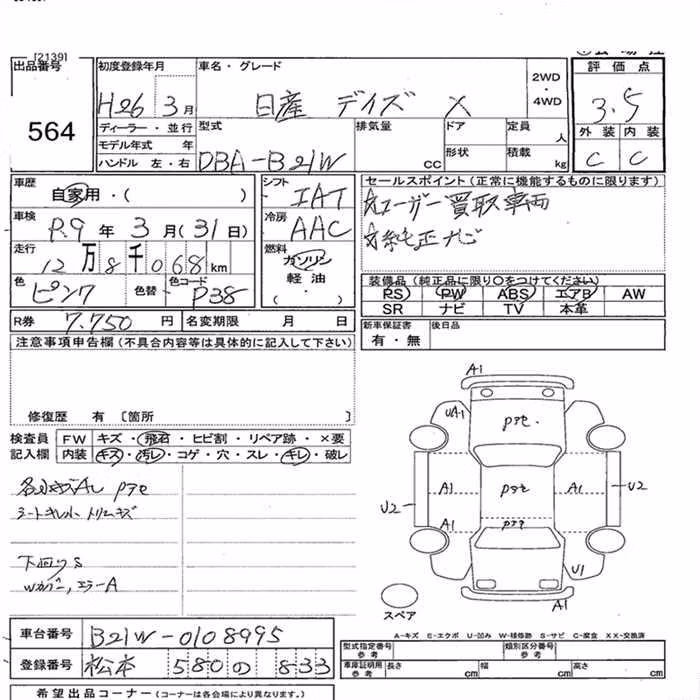 [2139]
出品番号
564
初度登録年月
H26 3月
車名・グレード
日産 デイズ X
2WD
・
4WD
評価点
3.5
外装 内装
C C
ディーラー・並行
モデル年式 年
ハンドル 左・右
型式
DBA-B21W
排気量
cc
ドア
形状
定員
人
積載
kg
車歴
自家用・( )
車検
R.9 年 3 月 (31 日)
走行
12万8千068km
色
ピンク
色替
色コード
P38
シフト
IAT
冷房
AAC
燃料
ガソリン
軽油
( ・ )
セールスポイント(正常に機能するものに限ります)
☆ユーザー買取車両
☆純正ナビ
装備品(純正品に限り○をつけてください)
PS PW ABS エアB AW
SR ナビ TV 本革
R券 7.750 円
名変期限 月 日
新車保証書
有・無
後日品
注意事項申告欄(不具合内容等は具体的に記入して下さい)
修復歴 有 〔箇所 〕
検査員
記入欄
FW キズ・飛石・ヒビ割・リペア跡・×要
内装 キズ・汚レ・コゲ・穴・スレ・キレ・破レ
シートキレ小 トリムキズ
A1
UA1
A1
A1
A1
U2
U2
U1
A1
スペア
A-キズ E-エクボ U-凹み W-補修跡 S-サビ C-腐食 XX-交換済
車台番号
B21W-0108995
登録番号
松本 580 の 833
型式指定番号
参考
類別区分番号
参考
車庫証明用
参考
長さ cm
幅 cm
高さ cm
希望出品コーナー(コーナーは各会場により異なります。)